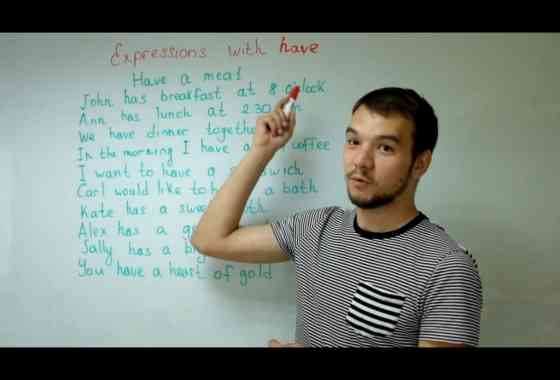 Expressions with have
Have a meal
John has breakfast at 8 o'clock
Ann has lunch at 2.30
We have dinner together
In the morning I have a coffee
I want to have a sandwich
Carl would like to have a bath
Kate has a sweet tooth
Alex has a
Sally has a
You have a heart of gold